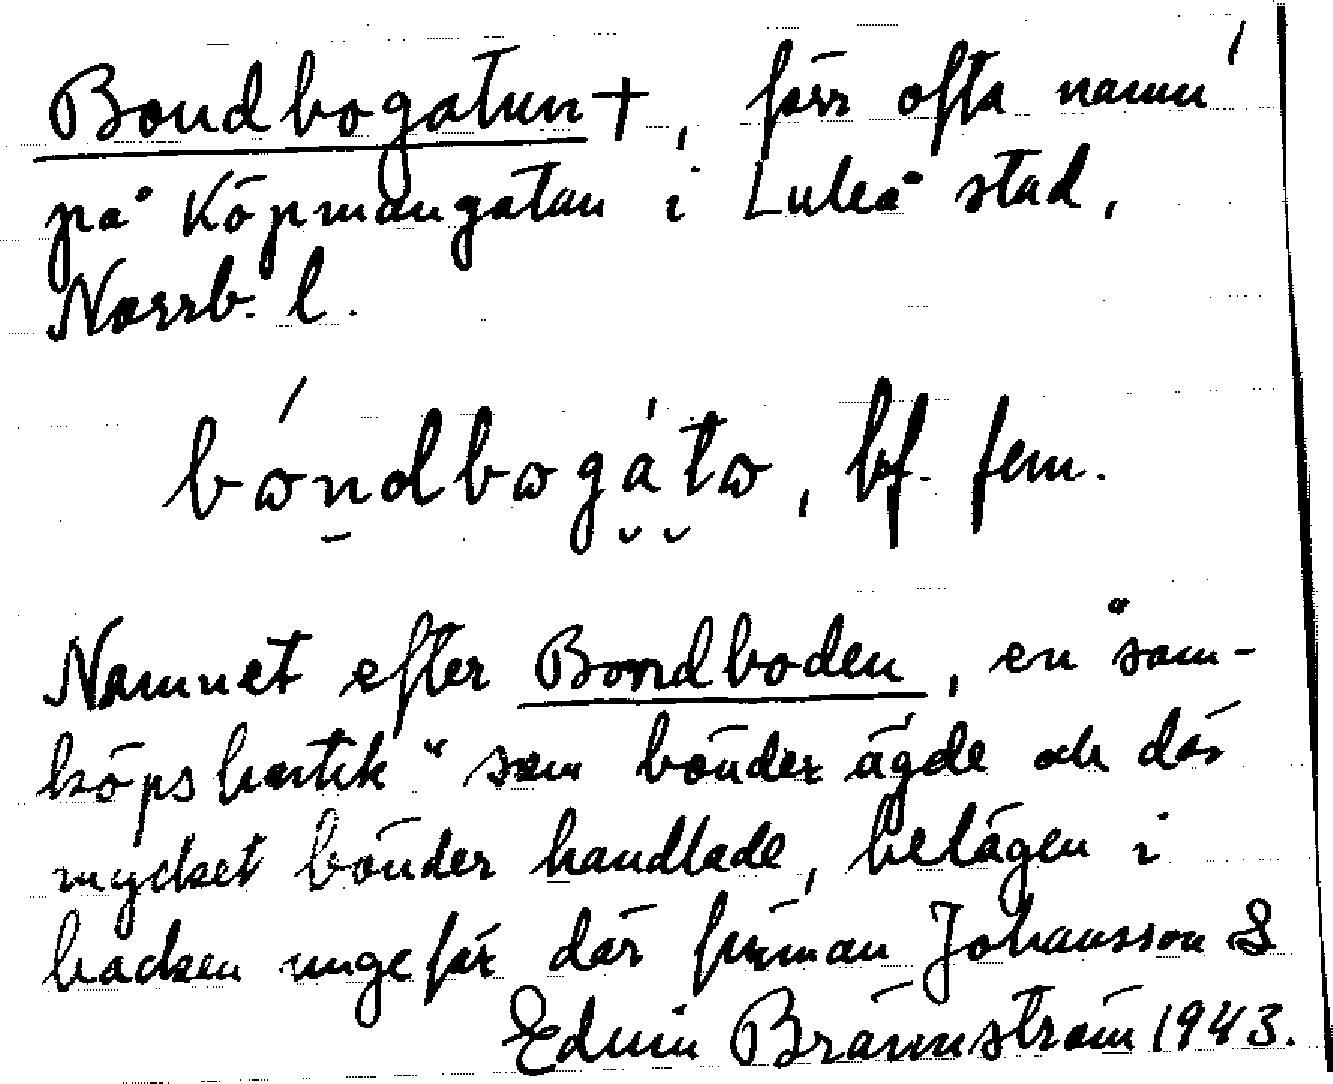 Bondbogatun †, förr ofta namn
på Köpmangatan i Luleå stad,
Norrb. l.
bóndbogàtɷ, bf. fem.
Namnet efter Bondboden, en "sam-
köpsbutik" som bönder ägde och där
mycket bönder handlade, belägen i
backen ungefär där firman Johansson &
Edwin Brännström 1943.